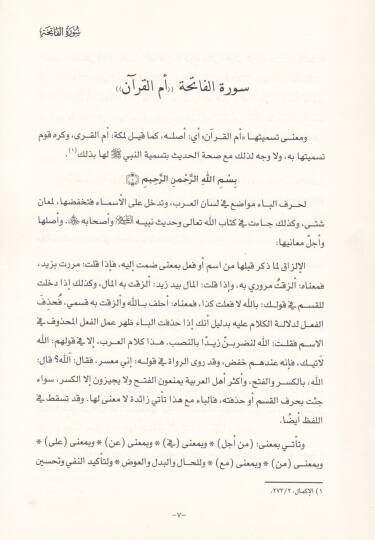 سورة الفاتحة
سورة الفاتحة ((أم القرآن))
ومعنى تسميتها «أم القرآن» أي: أصله، كما قيل لمكة: أم القرى، وكره قوم
تسميتها به، ولا وجه لذلك مع صحة الحديث بتسمية النبي ﷺ لها بذلك(١).
بِسْمِ اللَّهِ الرَّحْمَنِ الرَّحِيمِ
لحرف الباء مواضع في لسان العرب، وتدخل على الأسماء فتخفضها، لمعان
شتى، وكذلك جاءت في كتاب الله تعالى وحديث نبيه وأصحابه، وأصلها
وأجلّ معانيها:
الإلزاق لما ذكر قبلها من اسم أو فعل بمعنى ضمت إليه، فإذا قلت: مررت بزيد،
فمعناه: ألزقتُ مروري به، وإذا قلت: المال بيد زيد: ألزقت به المال، وكذلك إذا دخلت
للقسم في قولك: بالله لا فعلت كذا، فمعناه: أحلف بالله وألزقت به قسمي، فحذف
الفعل لدلالة الكلام عليه بدليل أنك إذا حذفت الباء ظهر عمل الفعل المحذوف في
الاسم فقلت: اللهَ لنضربنّ زيداً بالنصب. هذا كلام العرب، إلا في قولهم: الله
لآتيك، فإنه عندهم خفض، وقد روى الرواة في قوله: إني معسر، فقال: آلله؟ قال:
الله، بالكسر والفتح، وأكثر أهل العربية يمنعون الفتح ولا يجيزون إلا الكسر، سواء
جئت بحرف القسم أو حذفته، فالباء مع هذا تأتي زائدة لا معنى لها. وقد تسقط في
اللفظ أيضًا.
وتأتي بمعنى: (من أجل) * وبمعنى (في) * وبمعنى (عن) * وبمعنى (على) *
وبمعنى (من) * وبمعنى (مع) * وللحال والبدل والعوض * ولتأكيد النفي وتحسين
١) الإكمال: ٢٧٢/٢.
-٧-